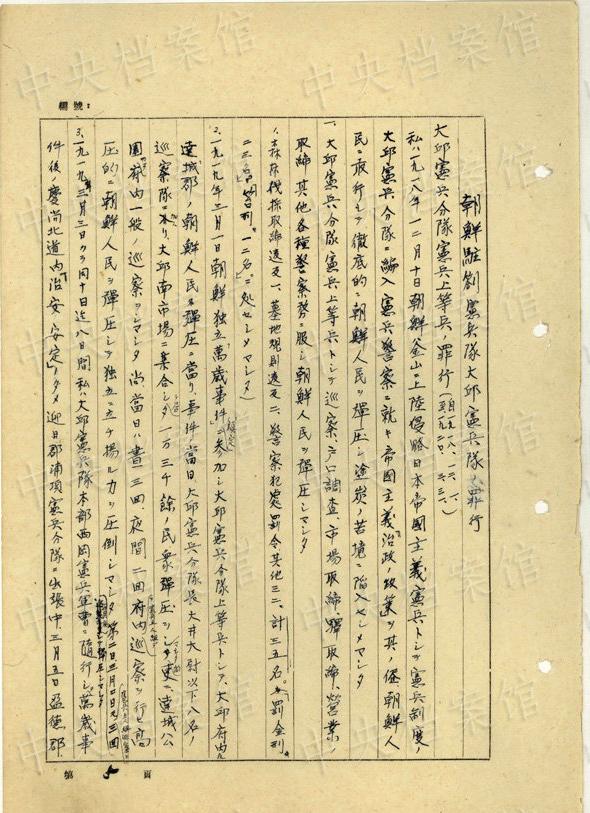 編號:
朝鮮駐劄憲兵隊大邱憲兵隊ノ罪行
大邱憲兵分隊憲兵上等兵ノ罪行
私ハ一九一八年一二月十日朝鮮釜山ニ上陸侵略日本帝國主義憲兵トシテ憲兵制度ノ
大邱憲兵分隊ニ編入憲兵警察ニ就キ帝國主義治政ノ政策ヲ其ノ儘朝鮮人
民ニ敢行シテ徹底的ニ朝鮮人民ヲ彈圧シ塗炭ノ苦境ニ陥入セシメマシタ
一、大邱憲兵分隊憲兵上等兵トシテ巡察、戸口調査、市場取締、驛取締、営業ノ
取締其他各種警察務ニ服シ朝鮮人民ヲ彈圧シマシタ
1、森林伐採取締違反一、墓地規則違反二、警察犯処罰令其他三二、計三五名ヲ罰金刑
二三名笞刑一二名ニ処セシメマシタ
2、一九一九年三月一日朝鮮独立萬歳事件ニ参加シ大邱憲兵分隊上等兵トシテ、大邱府内
達城郡ノ朝鮮人民ヲ彈圧ニ當リ事件當日大邱憲兵分隊長大井大尉以下八名ノ
巡察隊ニ亦リ、大邱南市場ニ集合シタ一万三千餘ノ民衆彈圧ヲシ更ニ達城公
園府内一般ノ巡察ヲシマシタ尚當日ハ晝三回、夜間二回府内巡察ヲ行セ高
圧的ニ朝鮮人民ヲ彈圧シテ独立ニ立チ揚ル力ヲ圧倒シマシタ
3、一九一九年三月三日カラ同十日迄八日間私ハ大邱憲兵隊本部西岡憲兵軍曹ニ隨行シ萬歳事
件後ノ慶尚北道内「治安安定」ノタメ迎日郡浦項憲兵分隊ニ出張中、三月五日盈徳郡
第 5 頁
中央档案馆